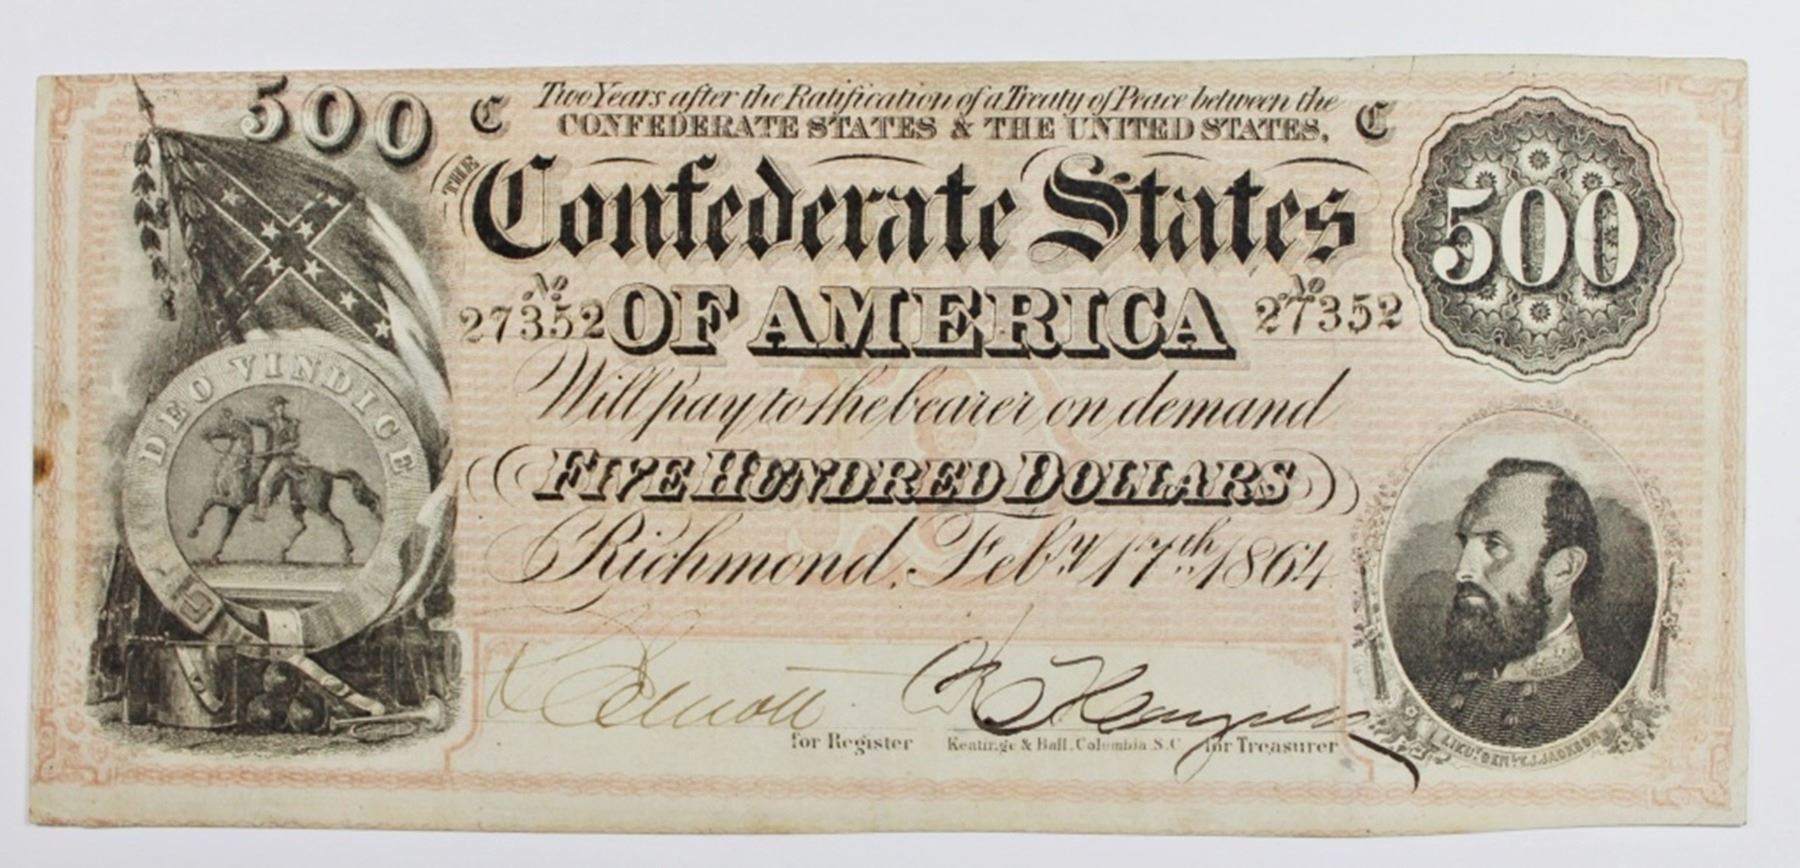 500
C
Two Years after the Ratification of a Treaty of Peace between the
C
CONFEDERATE STATES & THE UNITED STATES,
THE
Confederate States
500
No
27352
OF AMERICA
No
27352
Will pay to the bearer on demand
DEO VINDICE
FIVE HUNDRED DOLLARS
Richmond, Feby. 17th. 1864
for Register
Keatinge & Ball, Columbia S.C.
for Treasurer
LIEUT. GENL. T.J. JACKSON